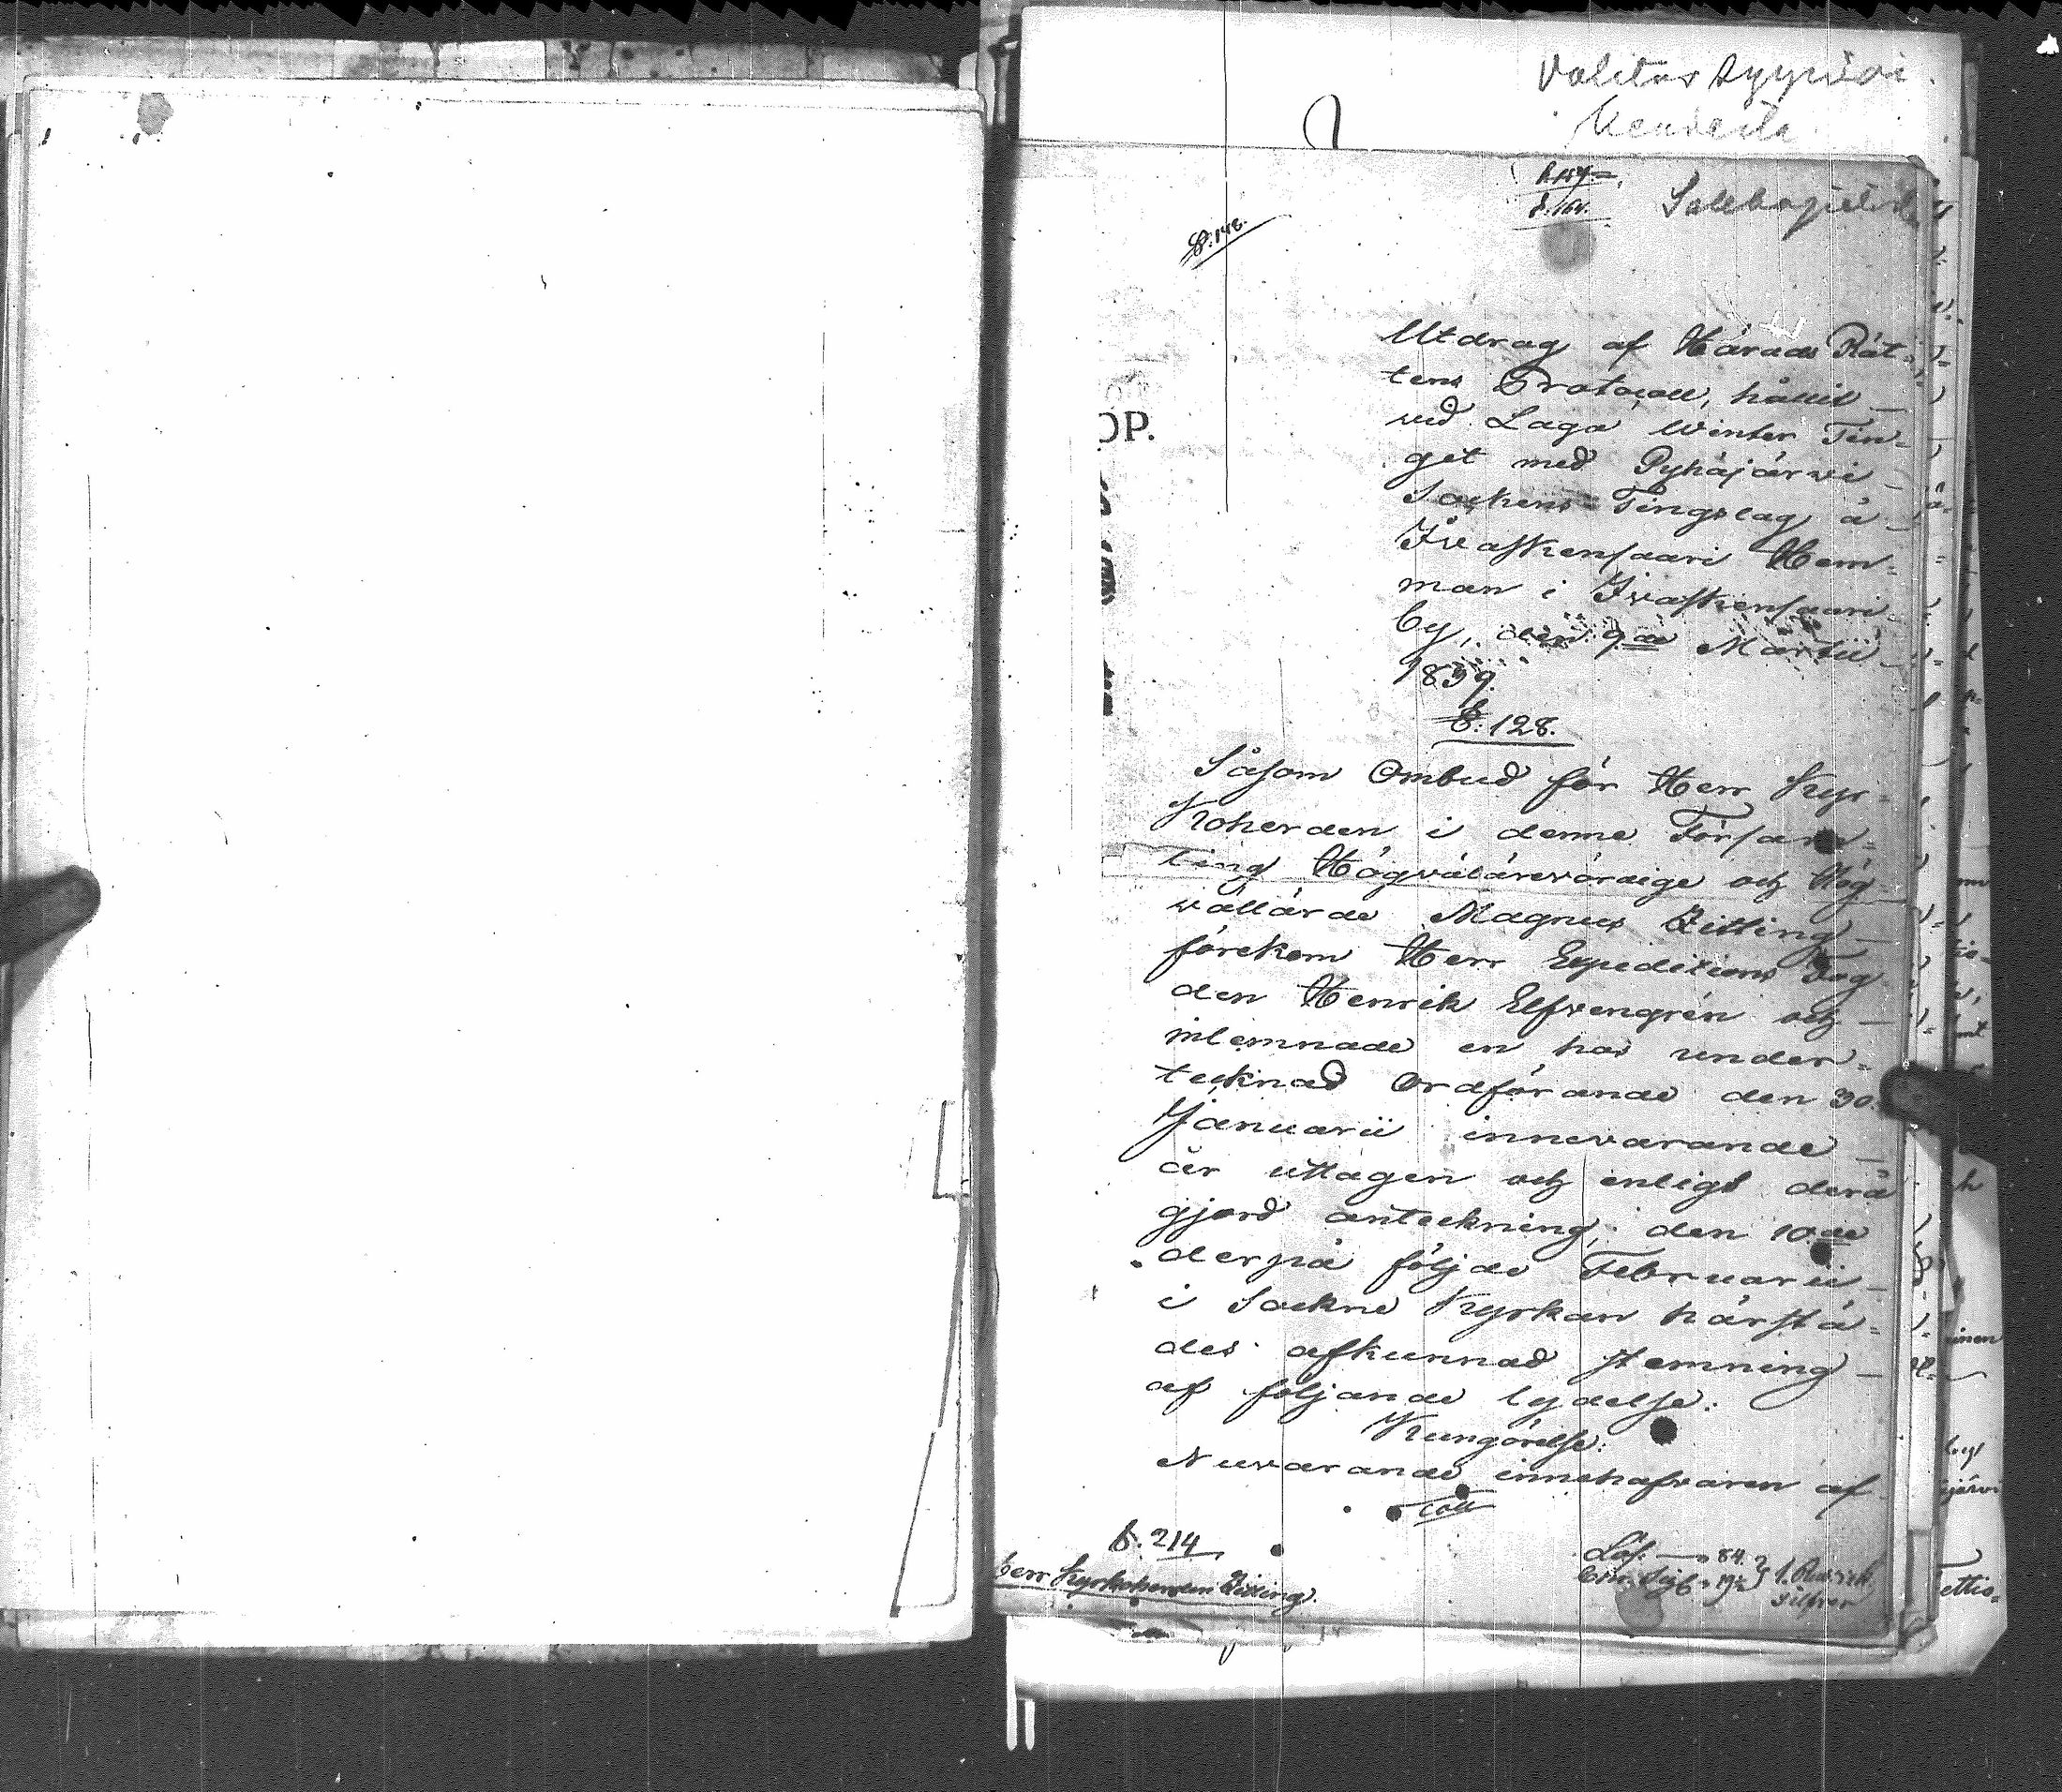 Valitus
§. 164.
§. 148.
OP.
Utdrag af Härads Rät-
tens Protocoll, hållit
vid Laga Winter Tin-
get med Pyhäjärwi
Sockens Tingslag å
Iwaskensaari Hem-
man i Iwaskensaari
by, den 9de Martii
1839.
§: 128.
Såsom Ombud för Herr Kyr-
koherden i denne Försam-
ling Högvälärevördige och Hög
vällärde Magnus Zitting
förekom Herr Expeditions Fog
den Henrik Elfvengrén och
inlemnade en hos under-
tecknad Ordförande den 30.
Januarii innevarande
år uttagen och enligt derå
gjord anteckning, den 10de
derpå följde Februarii
i Sockne Kyrkan härstä-
des afkunnad stemning
af följande lydelse:
Kungörelse:
Nuvarande innehafvaren af
§. 214
Herr Kyrkoherden Zitting.
Lös. 84.
Silfver